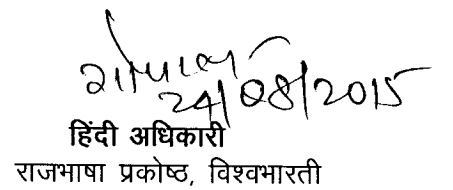 गोपाल
24/08/2015
हिंदी अधिकारी
राजभाषा प्रकोष्ठ, विश्वभारती